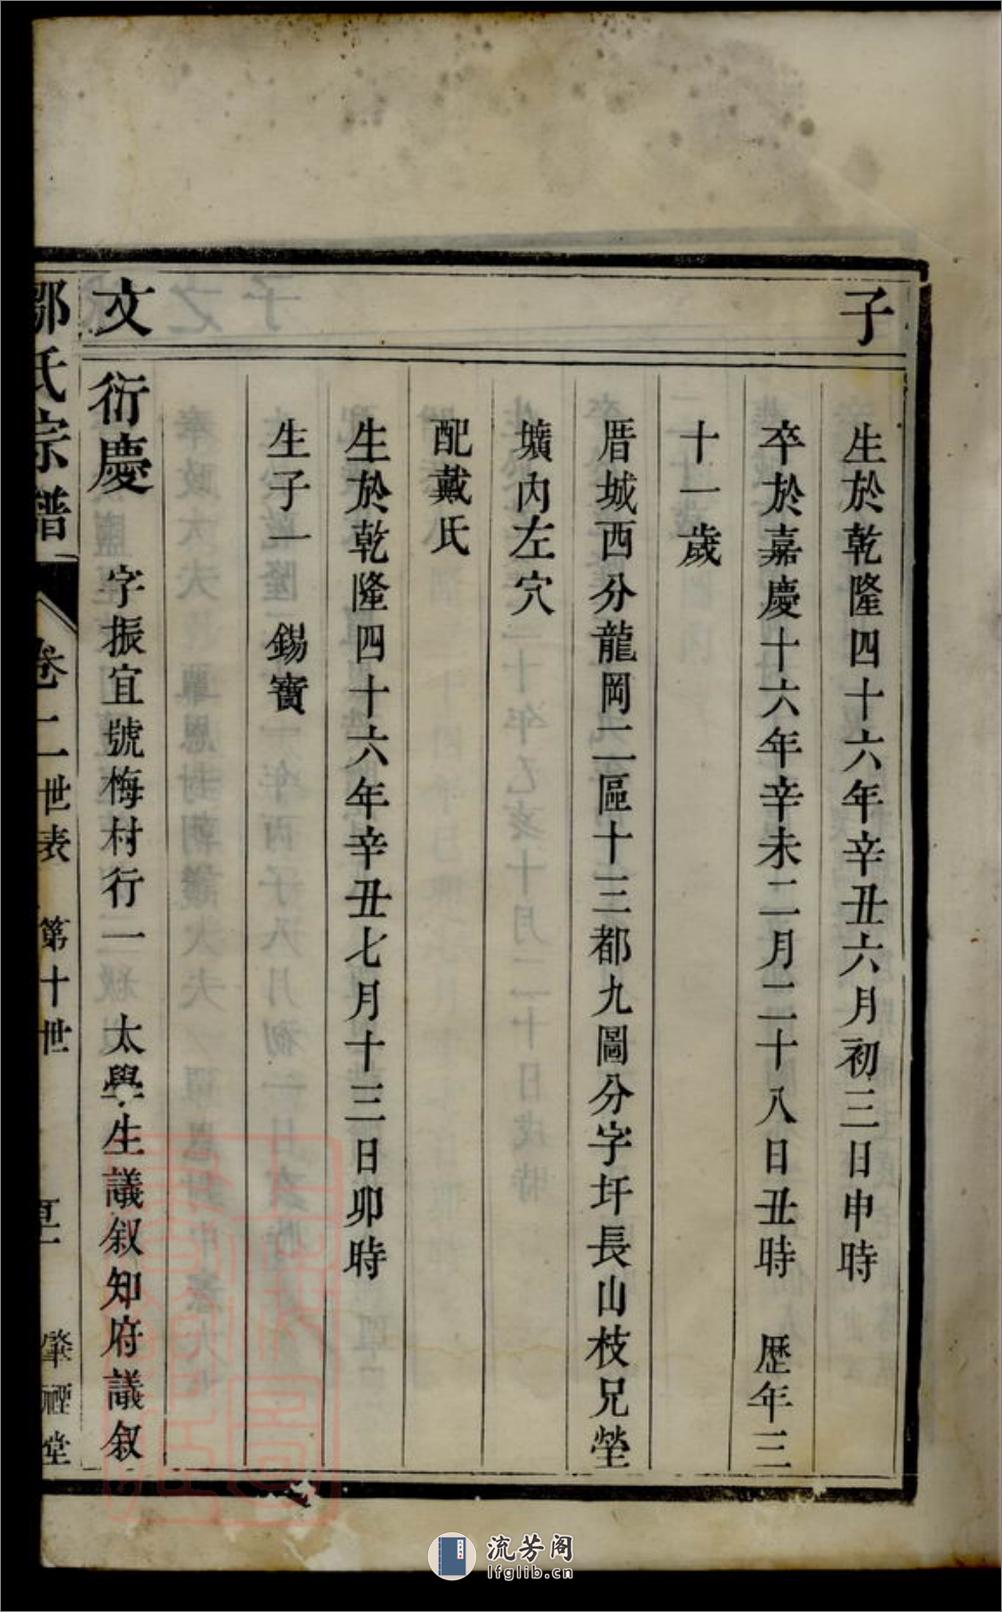 子
生於乾隆四十六年辛丑六月初三日申時
卒於嘉慶十六年辛未二月二十八日丑時 歷年三
十一歲
厝城西分龍岡二區十三都九圖分字圩長山枝兄塋
壙內左穴
配戴氏
生於乾隆四十六年辛丑七月十三日卯時
生子一 錫寶
文
衍慶 字振宜號梅村行一 太學生議叙知府議叙
鄒氏宗譜 卷二世表 第十世 肇禋堂
流芳阁
lfglib.cn